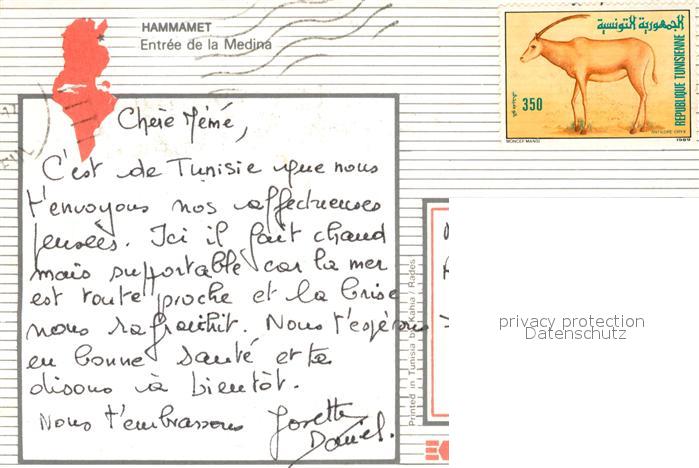 HAMMAMET
Entrée de la Medina
الجمهورية التونسية
REPUBLIQUE TUNISIENNE
350
ANTILOPE ORYX
MONCEF MANSI
1989
Chère Mémé,
C'est de Tunisie que nous
t'envoyons nos affectueuses
pensées. Ici il fait chaud
mais supportable car la mer
est toute proche et la brise
nous rafraichit. Nous t'espérons
en bonne santé et te
disons à bientôt.
Nous t'embrassons Josette
Daniel.
Printed in Tunisia by Kahia / Rades
privacy protection
Datenschutz